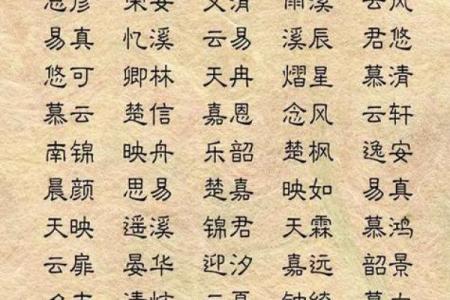 易真 忆溪 云易 溪辰 君悠
悠可 卿林 天冉 熠星 慕清
慕云 楚信 嘉恩 念风 云轩
南锦 映舟 乐韶 楚枫 逸安
晨颜 思易 楚嘉 映如 易真
天映 遥溪 锦君 天霖 慕鸿
云扉 晏华 迎汐 嘉远 韶景